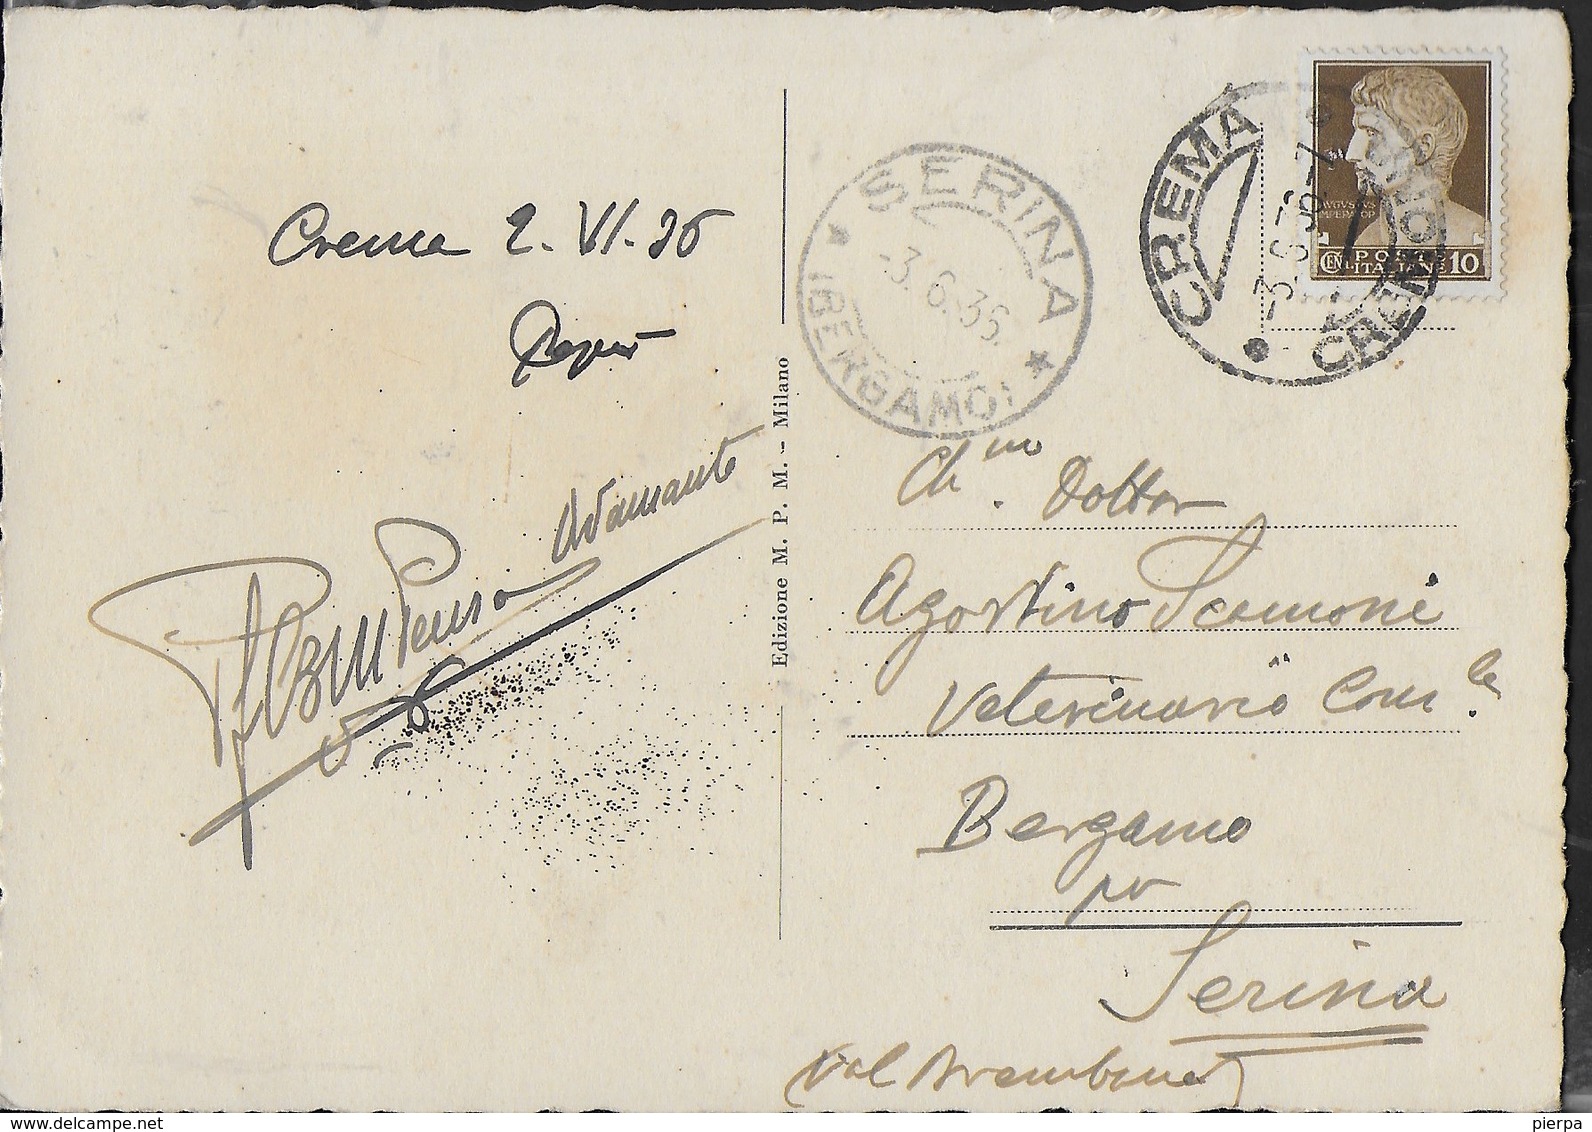 Crema 2. VI. 36
Adamante
Edizione M. P. M. - Milano
SERINA
-3.6.36.
(BERGAMO)
CREMA
-3.6.36-7
CREMONA
AVGVSTVS
IMPERATOR
POSTE
ITALIANE 10
Ch.mo Dottor
Agostino Scamoni
Veterinario Com.le
Bergamo
per
Serina
Val Brembana
pierpa